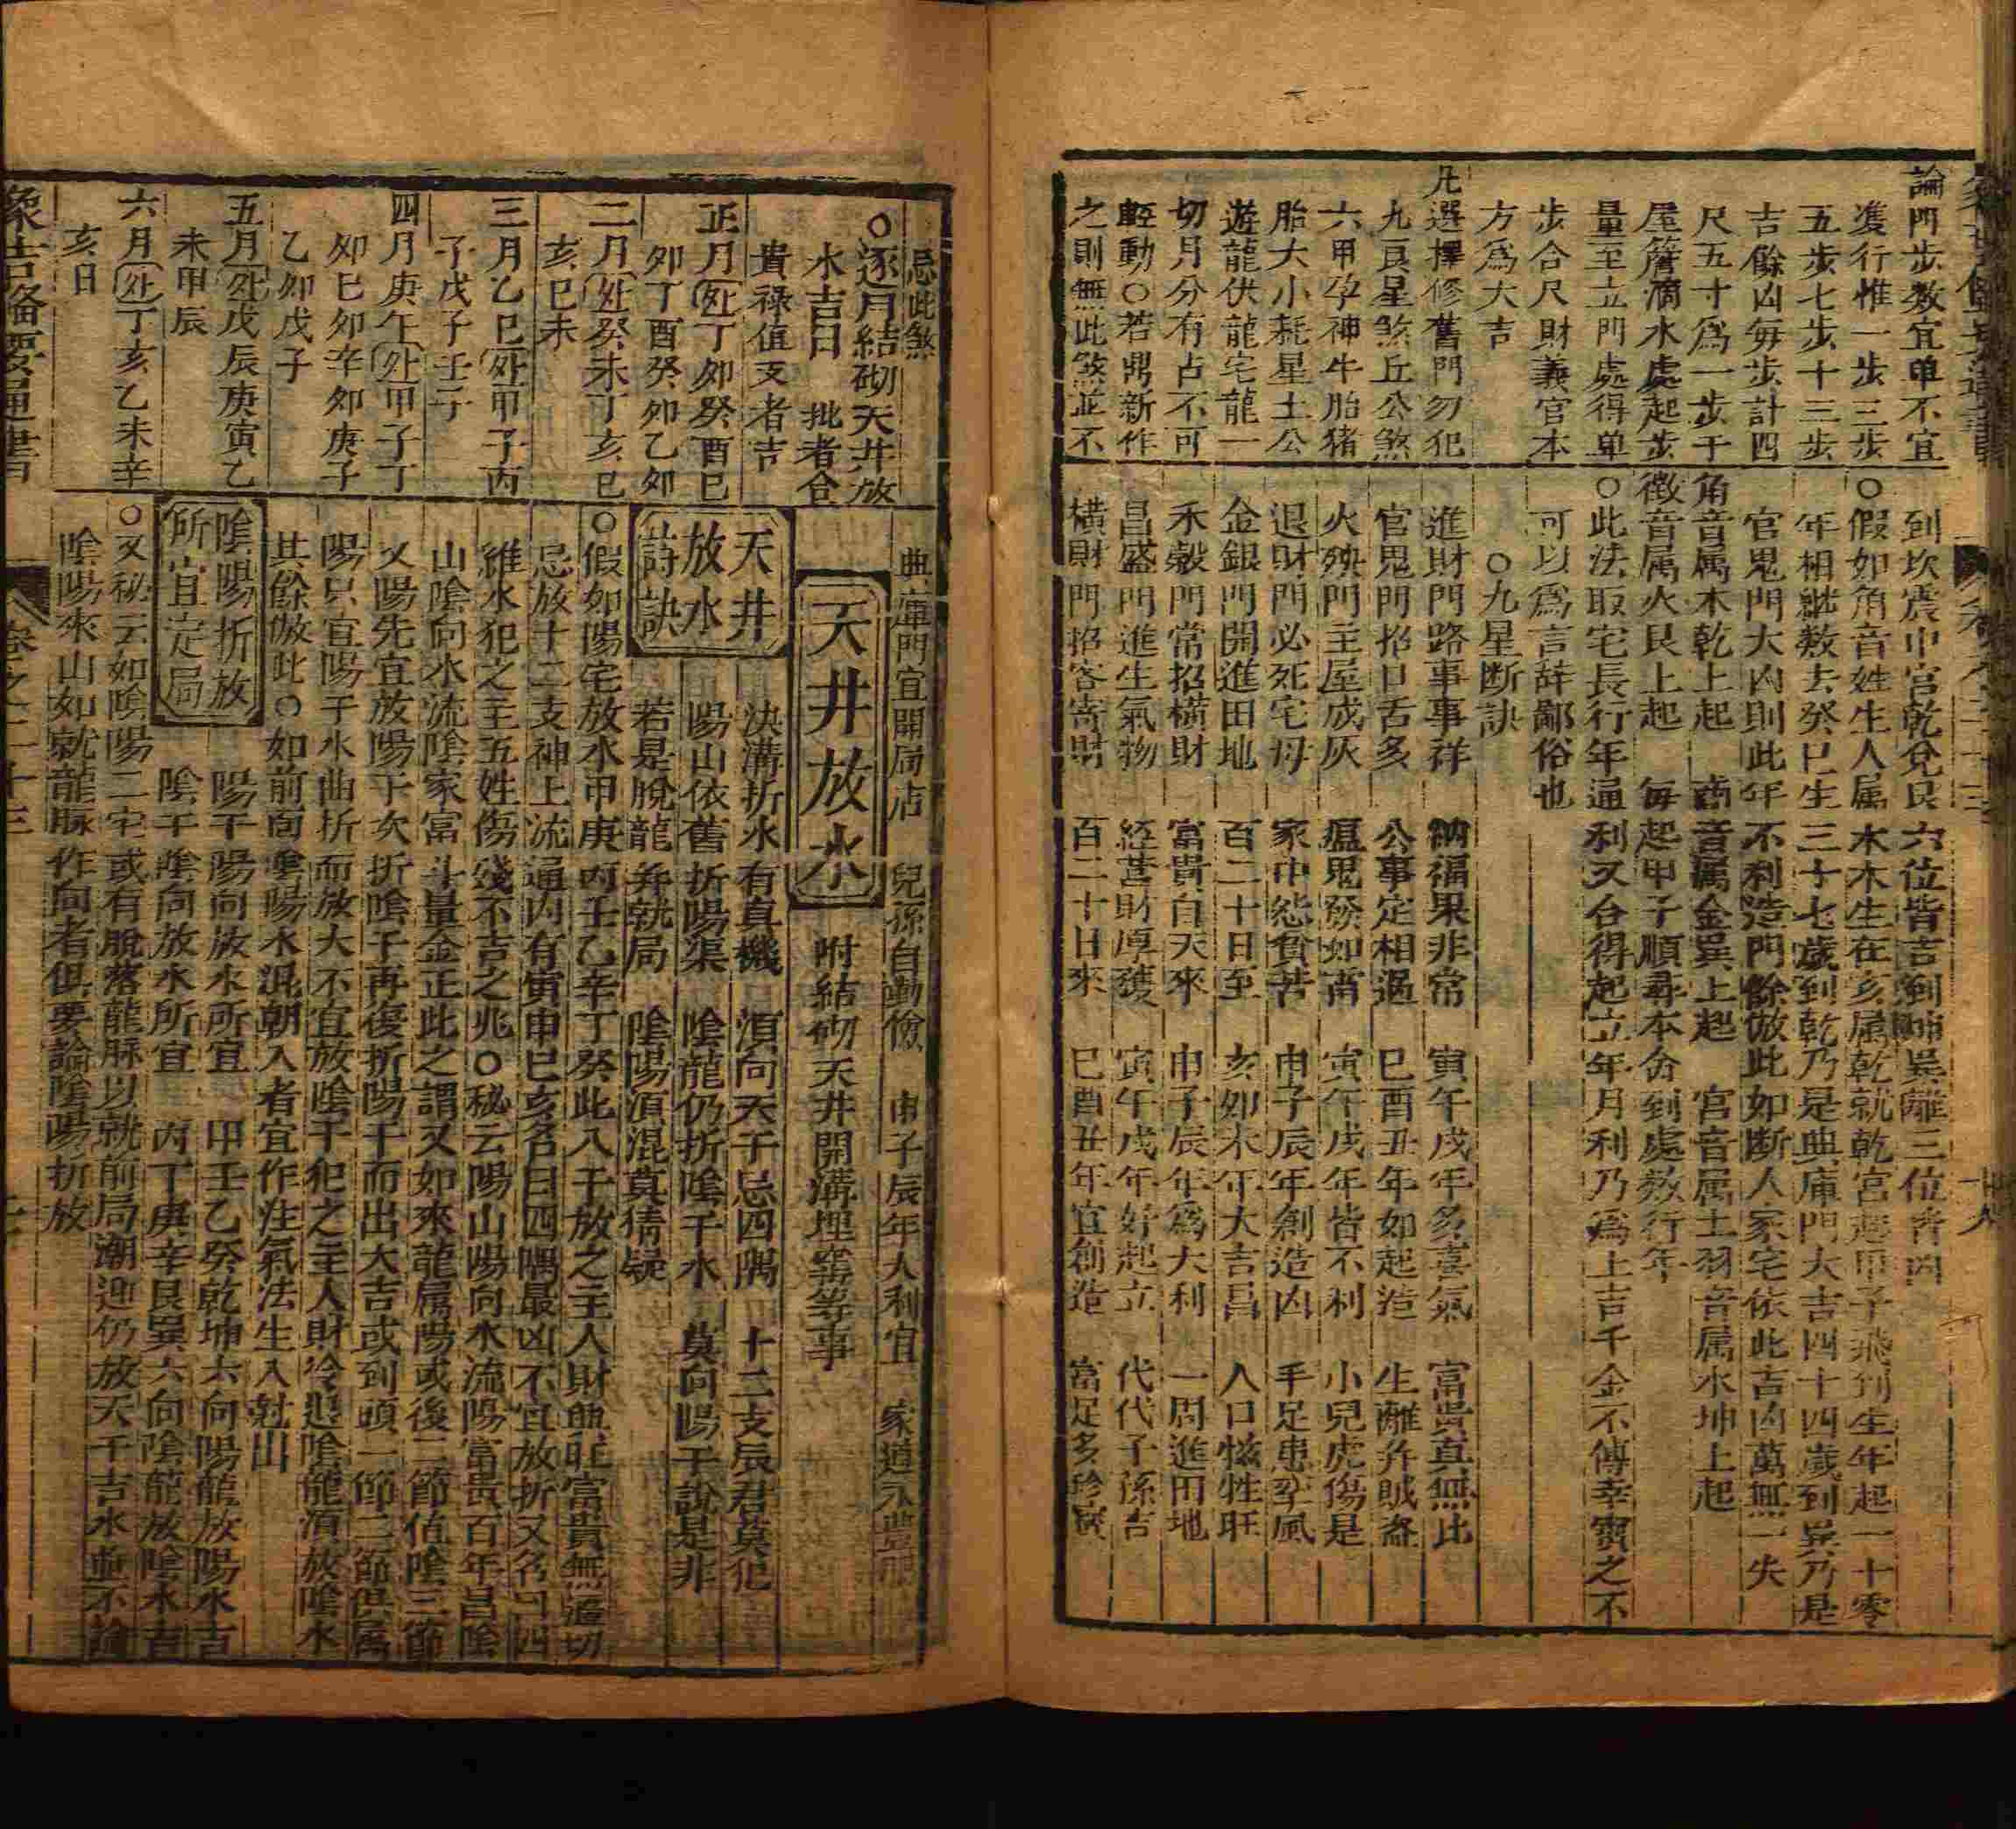 論門步数宜单不宜
準行惟一步三步
五步七步十三步
吉餘凶每步計四
尺五寸爲一步于
屋簷滴水處起步
量至立門處得单
步合尺財義官本
方爲大吉
凡選擇修舊門勿犯
九良星煞丘公煞
六甲孕神牛胎猪
胎大小耗星土公
遊龍伏龍宅龍一
切月分有占不可
輕動○若鼎新作
之則無此煞並不
到坎震中宮乾兌艮六位皆吉到坤巽離三位皆凶
○假如角音姓生人属木木生在亥属乾就乾宮起甲子飛到生年起一十零
年相就数去癸巳生三十七歲到乾乃是典庫門大吉四十四歲到巽乃是
官鬼門大凶則此年不利造門餘倣此如断人家宅依此吉凶萬無一失
角音属木乾上起 商音属金巽上起 宮音属土羽音属水坤上起
徴音属火艮上起 每起甲子順尋本命到處数行年
○此法取宅長行年通利又合得起立年月利乃爲上吉千金不傳幸寶之不
可以爲言辞鄙俗也
○九星断訣
進財門路事事祥 納福果非常 寅午戌年多喜氣 富貴真無比
官鬼門招口舌多 公事定相過 巳酉丑年如起造 生離并賊盗
火殃門主屋成灰 瘟鬼發如雷 寅午戌年皆不利 小兒虎傷是
退財門必死宅母 家中愁負苦 申子辰年創造凶 手足患孕風
金銀門開進田地 百二十日至 亥卯未年大吉昌 人口慈牲旺
禾穀門常招横財 富貴自天來 申子辰年爲大利 一周進田地
昌盛門進生氣物 経營財厚獲 寅午戌年好起立 代代子孫吉
横財門招客寄財 百二十日來 巳酉丑年宜創造 富足多珍寳
忌此煞
○逐月結砌天井放
水吉日 批者合
貴禄值支者吉
正月(外)丁卯癸酉巳
卯丁酉癸卯乙卯
二月(外)癸未丁亥巳
亥巳未
三月乙巳(外)甲子丙
子戊子壬子
四月庚午(外)甲子丁
卯巳卯辛卯庚子
乙卯戊子
五月(外)戊辰庚寅乙
未甲辰
六月(外)丁亥乙未辛
亥日
典庫門宜開局店 兒孫自勤儉 申子辰年大利宜 家道永豊
天井放水 附結砌天井開溝埋窖等事
天井放水詩訣
決溝折水有真機 須向天干忌四隅 十二支辰君莫犯
陽山依舊折陽渠 陰龍仍折陰干水 莫向陽干說是非
若是脫龍并就局 陰陽須混莫猜疑
○假如陽宅放水甲庚丙壬乙辛丁癸此八干放之主人財興旺富貴無過切
忌放十二支神上流通内有寅申巳亥名曰四隅最凶不宜放折又名曰四
維水犯之主五姓傷殘不吉之兆○秘云陽山陽向水流陽富貴百年昌陰
山陰向水流陰家富斗量金正此之謂又如來龍属陽或後二節值陰三節
又陽先宜放陽干次折陰干再復折陽干而出大吉或到頭一節二節俱属
陽只宜陽干水曲折而放大不宜放陰干犯之主人財冷退陰龍須放陰水
其餘倣此○如前面陰陽水混朝入者宜作注氣法生入尅出
陰陽折放所宜定局
陽干陽向放水所宜 甲壬乙癸乾坤六向陽龍放陽水吉
陰干陰向放水所宜 丙丁庚辛艮巽六向陰龍放陰水吉
○又秘云如陰陽二宅或有脫落龍脉以就前局潮迎仍放天干吉水並不論
陰陽來山如就龍脉作向者俱要論陰陽折放
象吉備要通書
卷之二十三